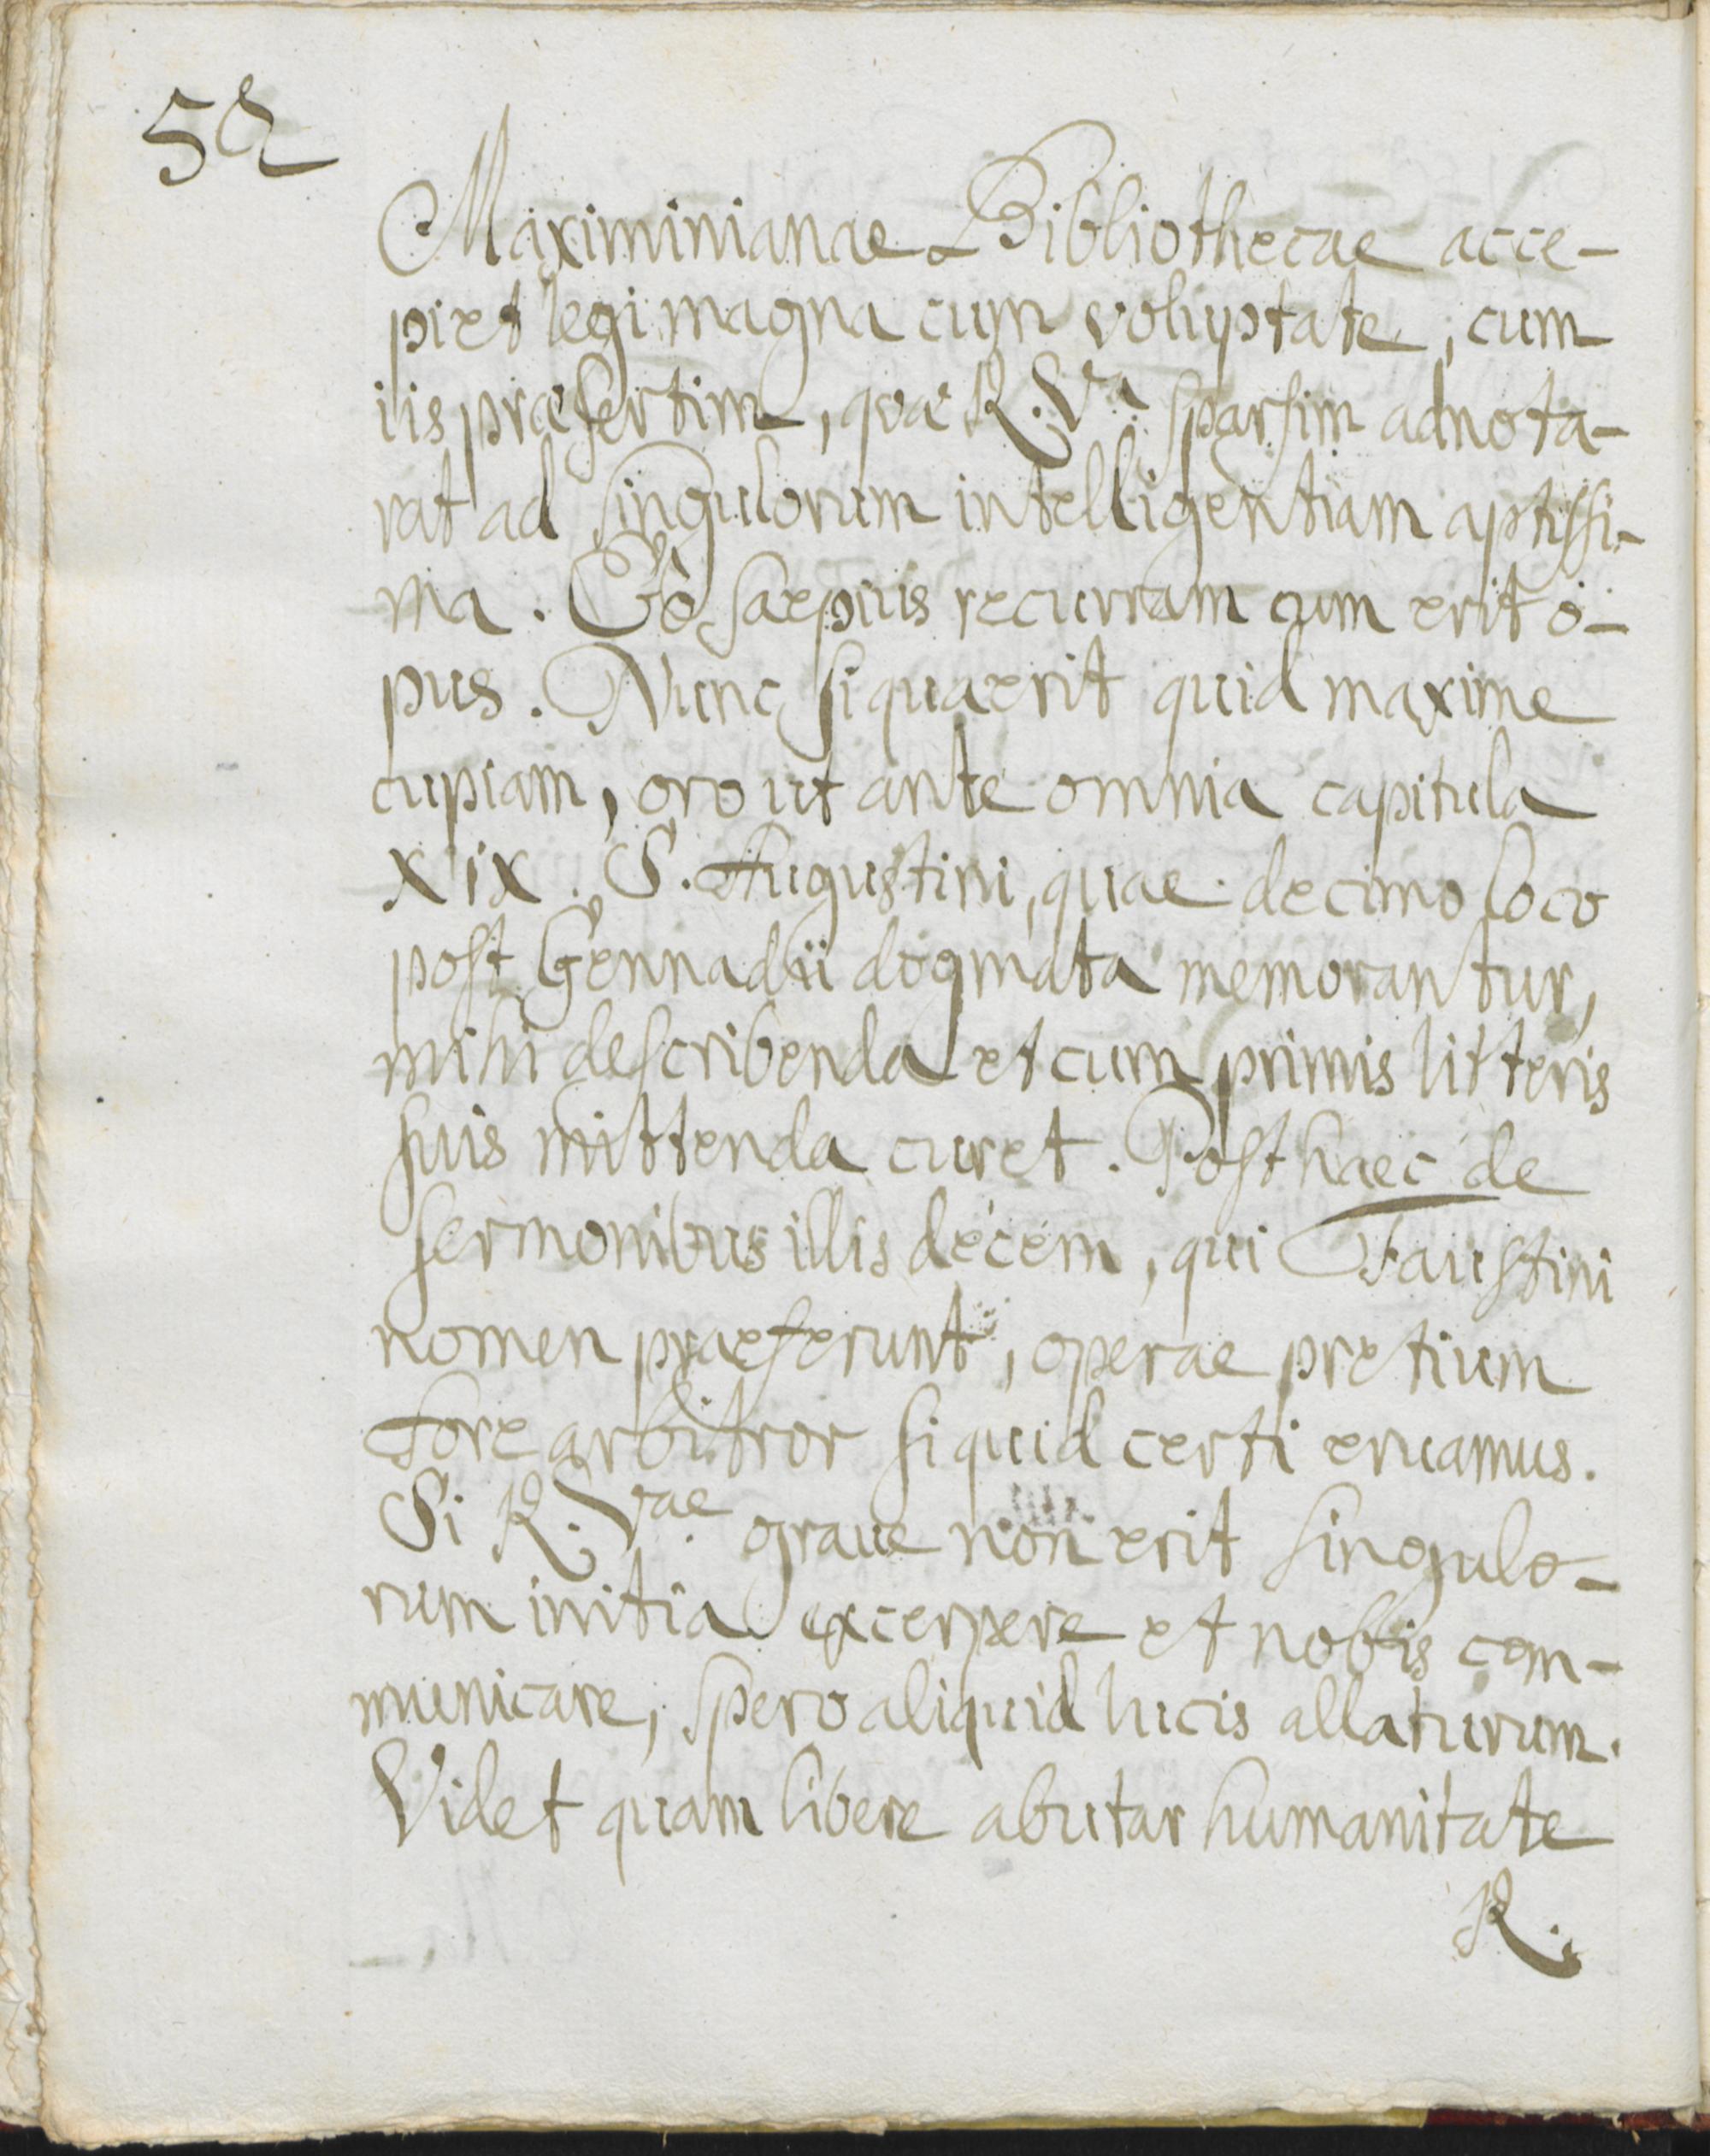 52
Maximinianae Bibliothecae acce-
pi et legi magna cum voluptate, cum
iis praesertim, quae R. Va sparsim adnota-
rat ad singulorum intelligentiam aptissi-
ma. Eò saepius recurram cum erit o-
pus. Nunc si quaerit quid maxime
cupiam, oro ut ante omnia capitula
xix. S. Augustini, quae decimo loco
post Gennadii dogmata memorantur,
mihi describenda et cum primis litteris
suis mittenda curet. Post haec de
sermonibus illis decem, qui Faustini
nomen praeferunt, operae pretium
fore arbitror si quid certi eruamus.
Si R. Vae graue non erit singulo-
rum initia excerpere et nobis com-
municare, spero aliquid lucis allaturum.
Videt quam libere abutar humanitate
R.